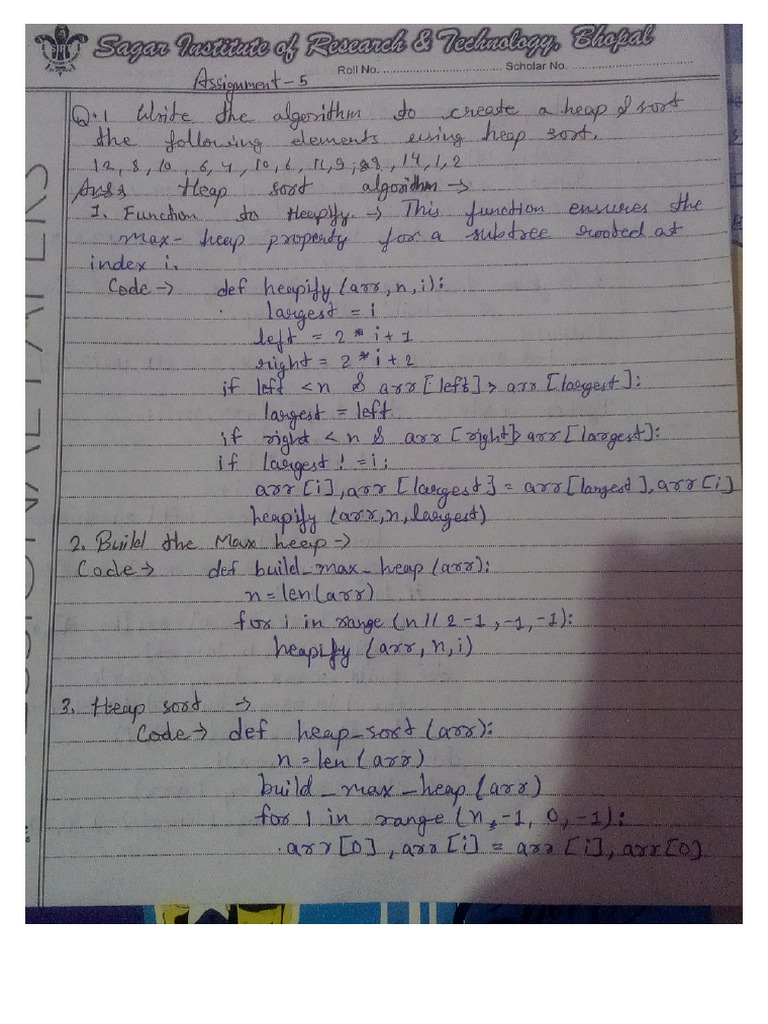 Sagar Institute of Research & Technology, Bhopal
Roll No. Scholar No.
Assignment-5
Q.1 Write the algorithm to create a heap & sort
the following elements using heap sort.
12, 8, 10, 6, 4, 10, 6, 11, 9, 14, 1, 2
Heap sort algorithm →
1. Function to Heapify. → This function ensures the
max-heap property for a subtree rooted at
index i.
Code → def heapify (arr, n, i):
largest = i
left = 2 * i + 1
right = 2 * i + 2
if left < n & arr [left] > arr [largest]:
largest = left
if right < n & arr [right] > arr [largest]:
if largest ! = i:
arr [i], arr [largest] = arr [largest], arr [i]
heapify (arr, n, largest)
2. Build the Max heep →
Code → def build_max_heap (arr):
n = len (arr)
for i in range (n // 2 - 1, -1, -1):
heapify (arr, n, i)
3. Heap sort →
Code → def heap_sort (arr):
n = len (arr)
build_max_heap (arr)
for i in range (n, -1, 0, -1):
arr [0], arr [i] = arr [i], arr [0]